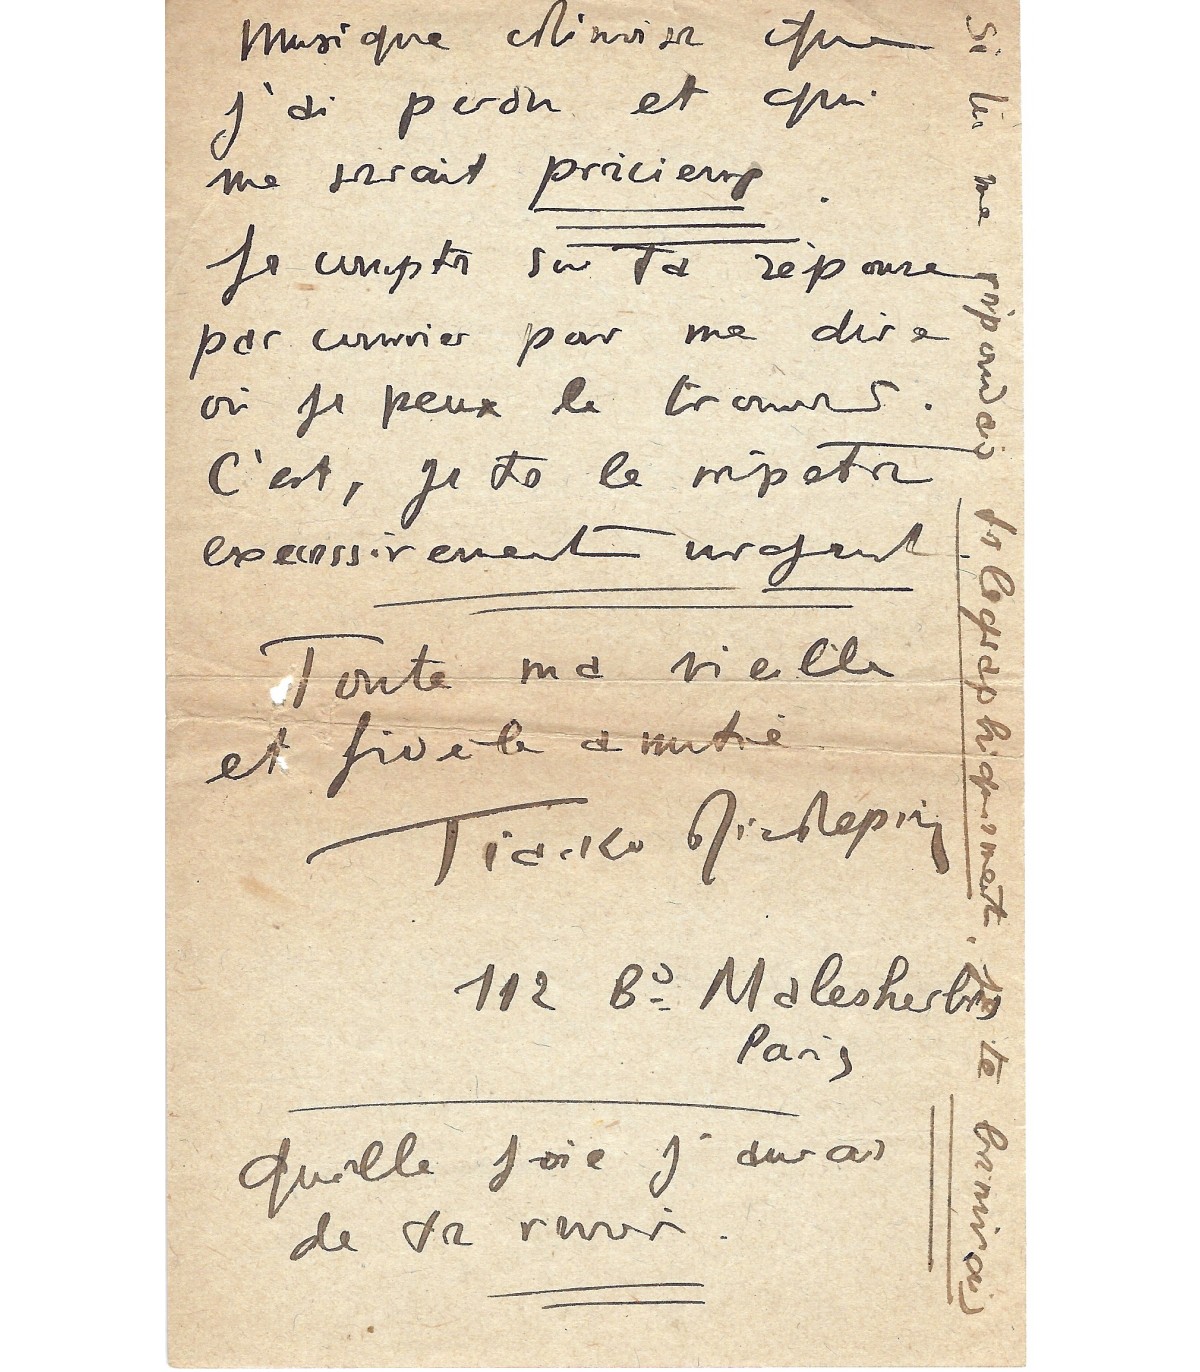 Musique que
j'ai perdu et qui
me serait précieux.
Je compte sur ta réponse
par courrier pour me dire
où je peux le trouver.
C'est, je te le répète
excessivement urgent
Toute ma vieille
et fidèle amitié
112 Bd Malesherbes
Paris
Quelle joie j'aurai
de te revoir.
Si tu me répondais télégraphiquement, je te bénirais